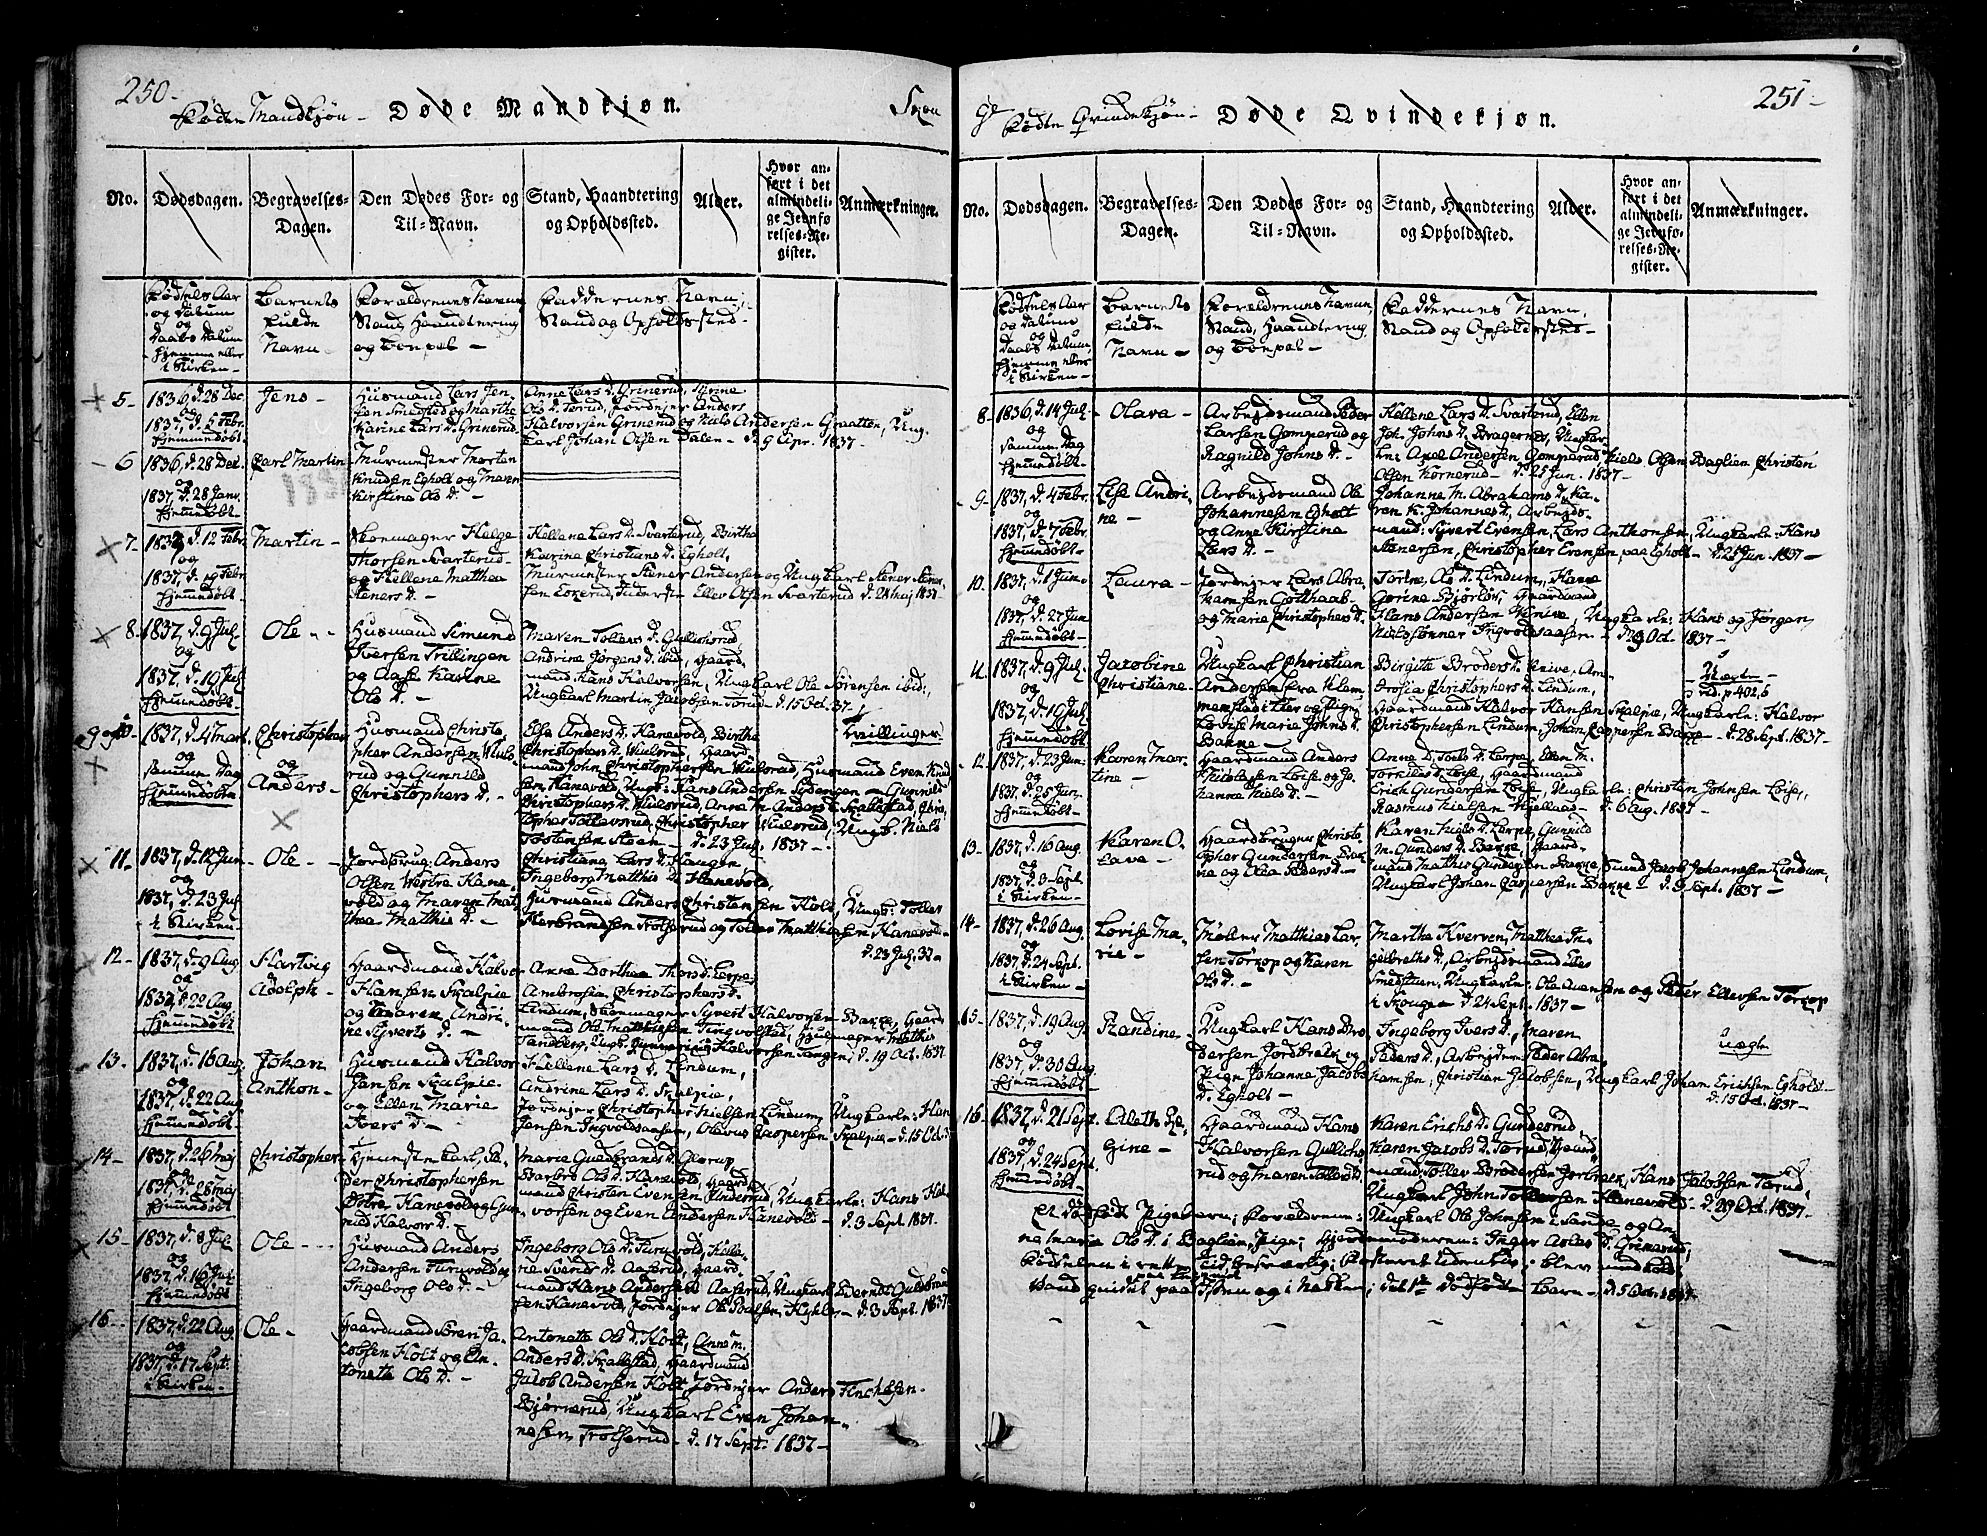 250-
Fødte Mandkjøn - Døde Mandkjøn.
No. Dødsdagen. Begravelses-Dagen. Den Dødes For- og Til-Navn. Stand, Haandtering og Opholdssted. Alder. Hvor anført i det almindelige Jevnførelses-Register. Anmærkninger.
Fødsels Aar og Datum og Daabs Datum hjemme eller i Kirken -
Barnets fulde Navn -
Forældrenes Navne Stand, Haandtering og Boepæl -
Faddernes Navn, Stand og Opholdssted -
5- 1836, d. 28 Dec. og 1837, d. 5 Febr. hjemmedøbt
Jens -
Husmand Lars Jensen Smedsted og Marthe Karine Lars D. Grinerud
Anne Lars D. Grinerud,
Ols D. Torud, Jordejer Anders
Halvorsen Grinerud og Niels Andersen Graatten, Ung.
Carl Johan Olsen Dalen - d. 9 Apr. 1837 -
6 1836, d. 28 Dec. og 1837, d. 28 Janv. hjemmedøbt
Carl Martin
Murmester Morten Knudsen Egholt og Maren Kirstine Ols D. -
7- 1837, d. 12 Febr. og 1837, d. Febr. hjemmedøbt
Martin -
Skomager Helge Thorsen Svarterud og Hellene Matthea Steners D. -
Hellene Lars D. Svarterud, Birthe
Karine Christians D. Egholt,
Murmester Stener Andersen og Ungkarl Stener Stenersen
Ellev Olsen Svarterud d. 28 Maj 1837-
8- 1837, d. 9 Jul. og 1837, d. 19 Jul. hjemmedøbt
Ole - -
Husmand Simund Iversen Trillingen og Aase Karine Ols D. -
Maren Tollers D. Gullichsrud
Andrine Jørgens D. ibid, Gaardmand Hans Halvorsen, Ungkarl Ole Sørensen ibid:,
Ungkarl Martin Jacobsen Torud - d. 15 Oct. 37.
9 og 10- 1837, d. 4 Mart. og samme Dag hjemmedøbte
Christopher og Anders -
Husmand Christopher Andersen Wulsrud og Gunnild Christophers D. -
Else Anders D. Hanevold, Birthe
Christophers D. Wulsrud, Gaardmand John Christophersen Wulsrud, Husmand Even Knudsen Hanevold, Ungk: Hans Andersen Sydengen - Gunnild
Christophers D. Wulsrud, Anne M. Anders D. Skallestad, Christopher Tollevsrud, Christopher Wulsrud, Ungk. Niels
Tostensen Steen - d. 23 Jul. 1837 -
Tvillinger
11- 1837, d. 12 Jun. og 1837, d. 23 Jul. i Kirken -
Ole - -
Jordbrug: Anders Olsen Westre Hanevold og Maren Matthea Matthis D. -
Christiane Lars D. Haugen
Ingeborg Matthis D. Hanevold,
Husmand Anders Christensen Hold, Ungk: Toller
Herbrandsen Trolserud og Toller Matthisen Hanevold -
d. 23 Jul. 37 -
12- 1837, d. 9 Aug. og 1837, d. 22 Aug. hjemmedøbt
Hartvig Adolph -
Gaardmand Halvor Hansen Skalpie og Maren Andrine Syverts D. -
Anne Dorthea Thors D. Lerpe
Ambrosia Christophers D.
Lindum, Skomager Syvert Halvorsen Bakke, Gaardmand Ole Matthiesen Tingvolstad, Hjulmager Matthis
Tandberg, Ungk. Gunnerius Halvorsen Tangen, d. 19 Oct. 1837
13- 1837, d. 16 Aug. og 1837, d. 22 Aug. hjemmedøbt
Johan Anthon -
Husmand Halvor Jensen Skalpie og Ellen Marie Ivers D. -
Hellene Lars D. Lindum,
Andrine Lars D. Skalpie,
Jordejer Christopher Nielsen Lindum, Ungkarle: Hans
Jensen Ingvoldsaasen, Olavus Caspersen Skalpie - d. 15 Oct.
14- 1837, d. 26 Maj og 1837, d. 28 Maj hjemmedøbt
Christopher
Tjenestekarl, Peder Christophersen Østre Hanevold og Gunnild Halvor D. -
Marie Guldbrands D. Glarup
Barbro Ols D. Hanevold, Gaardmand Christen Evensen Anderud, Ungkarle: Hans Halvorsen og Even Andersen Hanevold - d. 3 Sept. 1837.
15- 1837, d. 8 Jul. og 1837, d. 16 Jul. hjemmedøbt
Ole - - -
Husmand Anders Andersen Furuvold og Ingeborg Ols D. -
Ingeborg Ols D. Furuvold, Hellene Svends D. Aaserud, Gaardmand Hans Andersen Aaserud, Ungkarl Berndt Guldbrandsen Hanevold, Jordejer Ole - d. 3 Sept. 1837
16- 1837, d. 22 Aug. og 1837, d. 17 Sept. i Kirken -
Ole -
Gaardmand Søren Jacobsen Holt og Antonette Ols D. -
Antonette Ols D. Holt, Anne M.
Anders D. Skallestad, Gaardmand
Jacob Andersen Holt, Jordejer Anders Finchelsen
Bjørnerud, Ungkarl Even Johannesen Trolserud - d. 17 Sept. 1837 -
251-
Fødte Qvindekjøn - Døde Qvindekjøn.
No. Dødsdagen. Begravelses-Dagen. Den Dødes For- og Til-Navn. Stand, Haandtering og Opholdssted. Alder. Hvor anført i det almindelige Jevnførelses-Register. Anmærkninger.
Fødsels Aar og Datum og Daabs Datum, hjemme eller i Kirken -
Barnets fulde Navn -
Forældrenes Navne, Stand, Haandtering og Boepæl -
Faddernes Navn, Stand og Opholdssted -
8- 1836, d. 14 Jul. og samme Dag hjemmedøbt -
Olava -
Arbejdsmand Peder Larsen Gomperud og Ragnild Johns D. -
Hellene Lars D. Svarterud, Ellen
Joh. Johns D. Bragernes, Ungkarle: Axel Andersen Gomperud, Niels Olsen Baglien, Christen
Olsen Kornerud - d. 25 Jun. 1837 -
9- 1837, d. 4 Febr. og 1837, d. 7 Febr. hjemmedøbt -
Else Andrine -
Arbejdsmand Ole Johannesen Egholt og Anne Kirstine Lars D. -
Johanne M. Abrahams D., Karen K. Johannes D., Arbejdsmand: Syvert Evensen, Lars Anthonsen, Ungkarle: Hans
Stenersen, Christopher Evensen, paa Egholt - d. 25 Jun. 1837 -
10. 1837, d. 1 Jun. og 1837, d. 27 Jun. hjemmedøbt -
Laura -
Jordejer Lars Abrahamsen Gotthaab og Marie Christophers D.
Torine Ols D. Lindum, Hanne
Gorine Bjørløv, Gaardmand
Hans Andersen Knive, Ungkarle: Hans og Jørgen
Nielssønner Ingvoldsaasen - d. 9 Oct. 1837 -
11. 1837, d. 9 Jul. og 1837, d. 19 Jul. hjemmedøbt -
Jacobine Christiane
Ungkarl Christian Andersen fra Klemmemsted i Lier og Pigen Lovise Marie Johns D. Bakke -
Birgite Broders D. Knive, Ambrosia Christophers D. Lindum,
Gaardmand Halvor Hansen Skalpie, Ungkarle: Halvor
Christophersen Lindum, Johan Caspersen Bakke - d. 28 Sept. 1837 -
Uægte
vid. p. 402, 6
12. 1837, d. 23 Jun. og 1837, d. 25 Jun. hjemmedøbt
Karen Martine -
Gaardmand Anders Nielsen Løise og Johanne Niels D. -
Anne D. Toels D. Lerpe, Ellen M.
Torkilds D. Løise, Gaardmand
Erich Gundersen Løise, Ungkarle: Christen Johnsen Løise,
Rasmus Nielsen Hjellaas - d. 6 Aug. 1837 -
13- 1837, d. 16 Aug. og 1837, d. 3 Sept. i Kirken -
Karen Olave -
Gaardbruger Christopher Gundersen Bakke og Olea Peders D. -
Karen Niels D. Lerpe, Gunnild
M. Gunders D. Bakke, Gaardmand Matthis Gundersen Bakke, Svend Jacob Johannesen Lindum,
Ungkarl Johan Caspersen Bakke - d. 3 Sept. 1837 -
14- 1837, d. 26 Aug. og 1837, d. 24 Sept. i Kirken -
Lovise Marie -
Møller Matthias Larsen Torkop og Karen Ols D. -
Marthe Kverven, Matthea Ingelbreths D., Arbejdsmand
Smedstuen, Ungkarle: Ole Evensen og Peder Ellevsen Torkop
i Skouge - d. 24 Sept. 1837 -
15- 1837, d. 19 Aug. og 1837, d. 30 Aug. hjemmedøbt -
Randine -
Ungkarl Hans Brodersen Jordbræk og Pigen Johanne Jacobs D. Egholt -
Ingeborg Ivers D., Maren
Peders D., Arbejder: Peder Abrahamsen, Christian Jacobsen, Ungkarl Johan Erichsen Egholt -
d. 15 Oct. 1837 -
uægte
16- 1837, d. 21 Sept. og 1837, d. 24 Sept. hjemmedøbt -
Aleth Regine -
Gaardmand Hans Halvorsen Gullichsrud og Maren Tolles D.
Karen Erichs D. Gundesrud,
Karen Jacobs D. Torud, Gaardmand Tollev Brodersen Jorbræk, Hans Jacobsen Torud,
Ungkarl John Tollersen Hanevold - d. 29 Oct. 1837 -
Et dødfødt Pigebarn; Forældrene: Ungkarl Ole Johnsen i Sande og Anne Maria Ols D. i Baglien, Pige; Gjordemoderen: Inger Aslas D. Grinerud;
Fødselen i rette Tid, besværlig; Fosteret lidenlig; blev med koldt
Vand gnidet paa Issen og i Nakken; det 1ste dødfødte Barn - d. 5 Oct. 1837 -